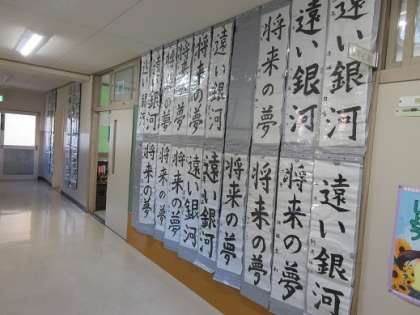 遠い銀河
遠い銀河
将来の夢
遠い銀河
将来の夢
将来の夢
将来の夢
遠い銀河
遠い銀河
将来の夢
将来の夢
将来の夢
遠い銀河
遠い銀河
将来の夢
将来の夢
将来の夢